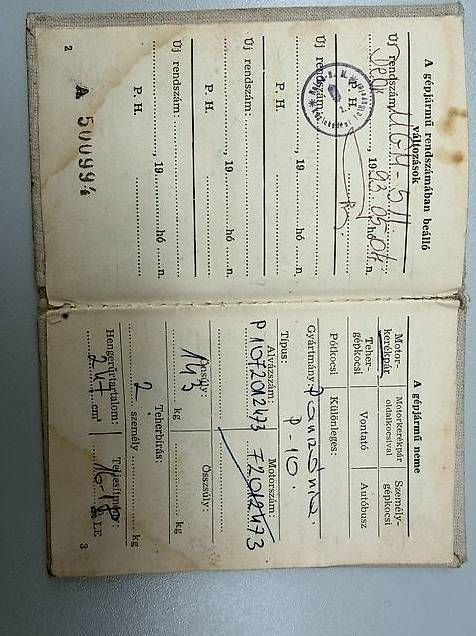 A gépjármű rendszámában beálló
változások
Új rendszám: UGH-511
Deák, 1993. 05 hó 04 n.
P. H.
Új rendszám:
, 19 hó n.
P. H.
Új rendszám:
, 19 hó n.
P. H.
Új rendszám:
, 19 hó n.
P. H.
2
A 500994
A gépjármű neme
Motor-
kerékpár
Motorkerékpár
oldalkocsival
Személy-
gépkocsi
Teher-
gépkocsi
Vontató
Autóbusz
Pótkocsi
Különleges:
Gyártmány: Pannónia.
Típus: P-10.
Alvázszám:
P 1072012473
Motorszám:
72012473
Önsúly:
143 kg
Összsúly:
kg
Teherbírás:
2 személy kg
Hengerűrtartalom:
247 cm³
Teljesítmény:
LE
3